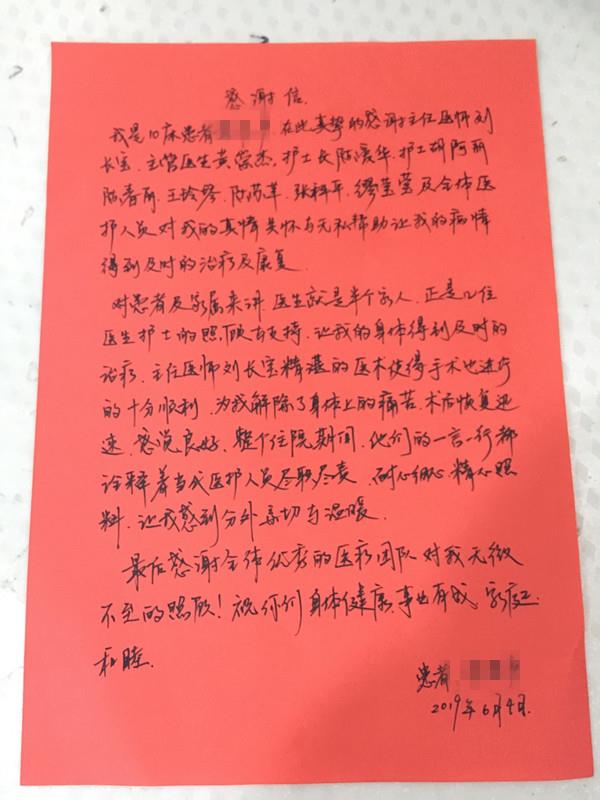 感谢信.
我是10床患者 在此真挚的感谢主任医师刘
长宝、主管医生黄崇杰、护士长陈爱华、护士胡阿丽
陈春丽、王玲 、陈 、张 、缪莹莹及全体医
护人员对我的真情关怀与无私帮助让我的病情
得到及时的治疗及康复
对患者及家属来讲 医生就是半个家人、正是几位
医生护士的照顾与支持、让我的身体得到及时的
治疗、主任医师刘长宝精湛的医术使得手术也进行
的十分顺利、为我解除了身体上的痛苦、术后恢复迅
速、感觉良好、整个住院期间、他们的一言一行都
诠释着当代医护人员尽职尽责、耐心细心、精心照
料、让我感到分外亲切与温暖、
最后感谢全体优秀的医疗团队对我无微
不至的照顾！祝你们身体健康、事业有成、家庭
和睦.
患者
2019年6月4日.